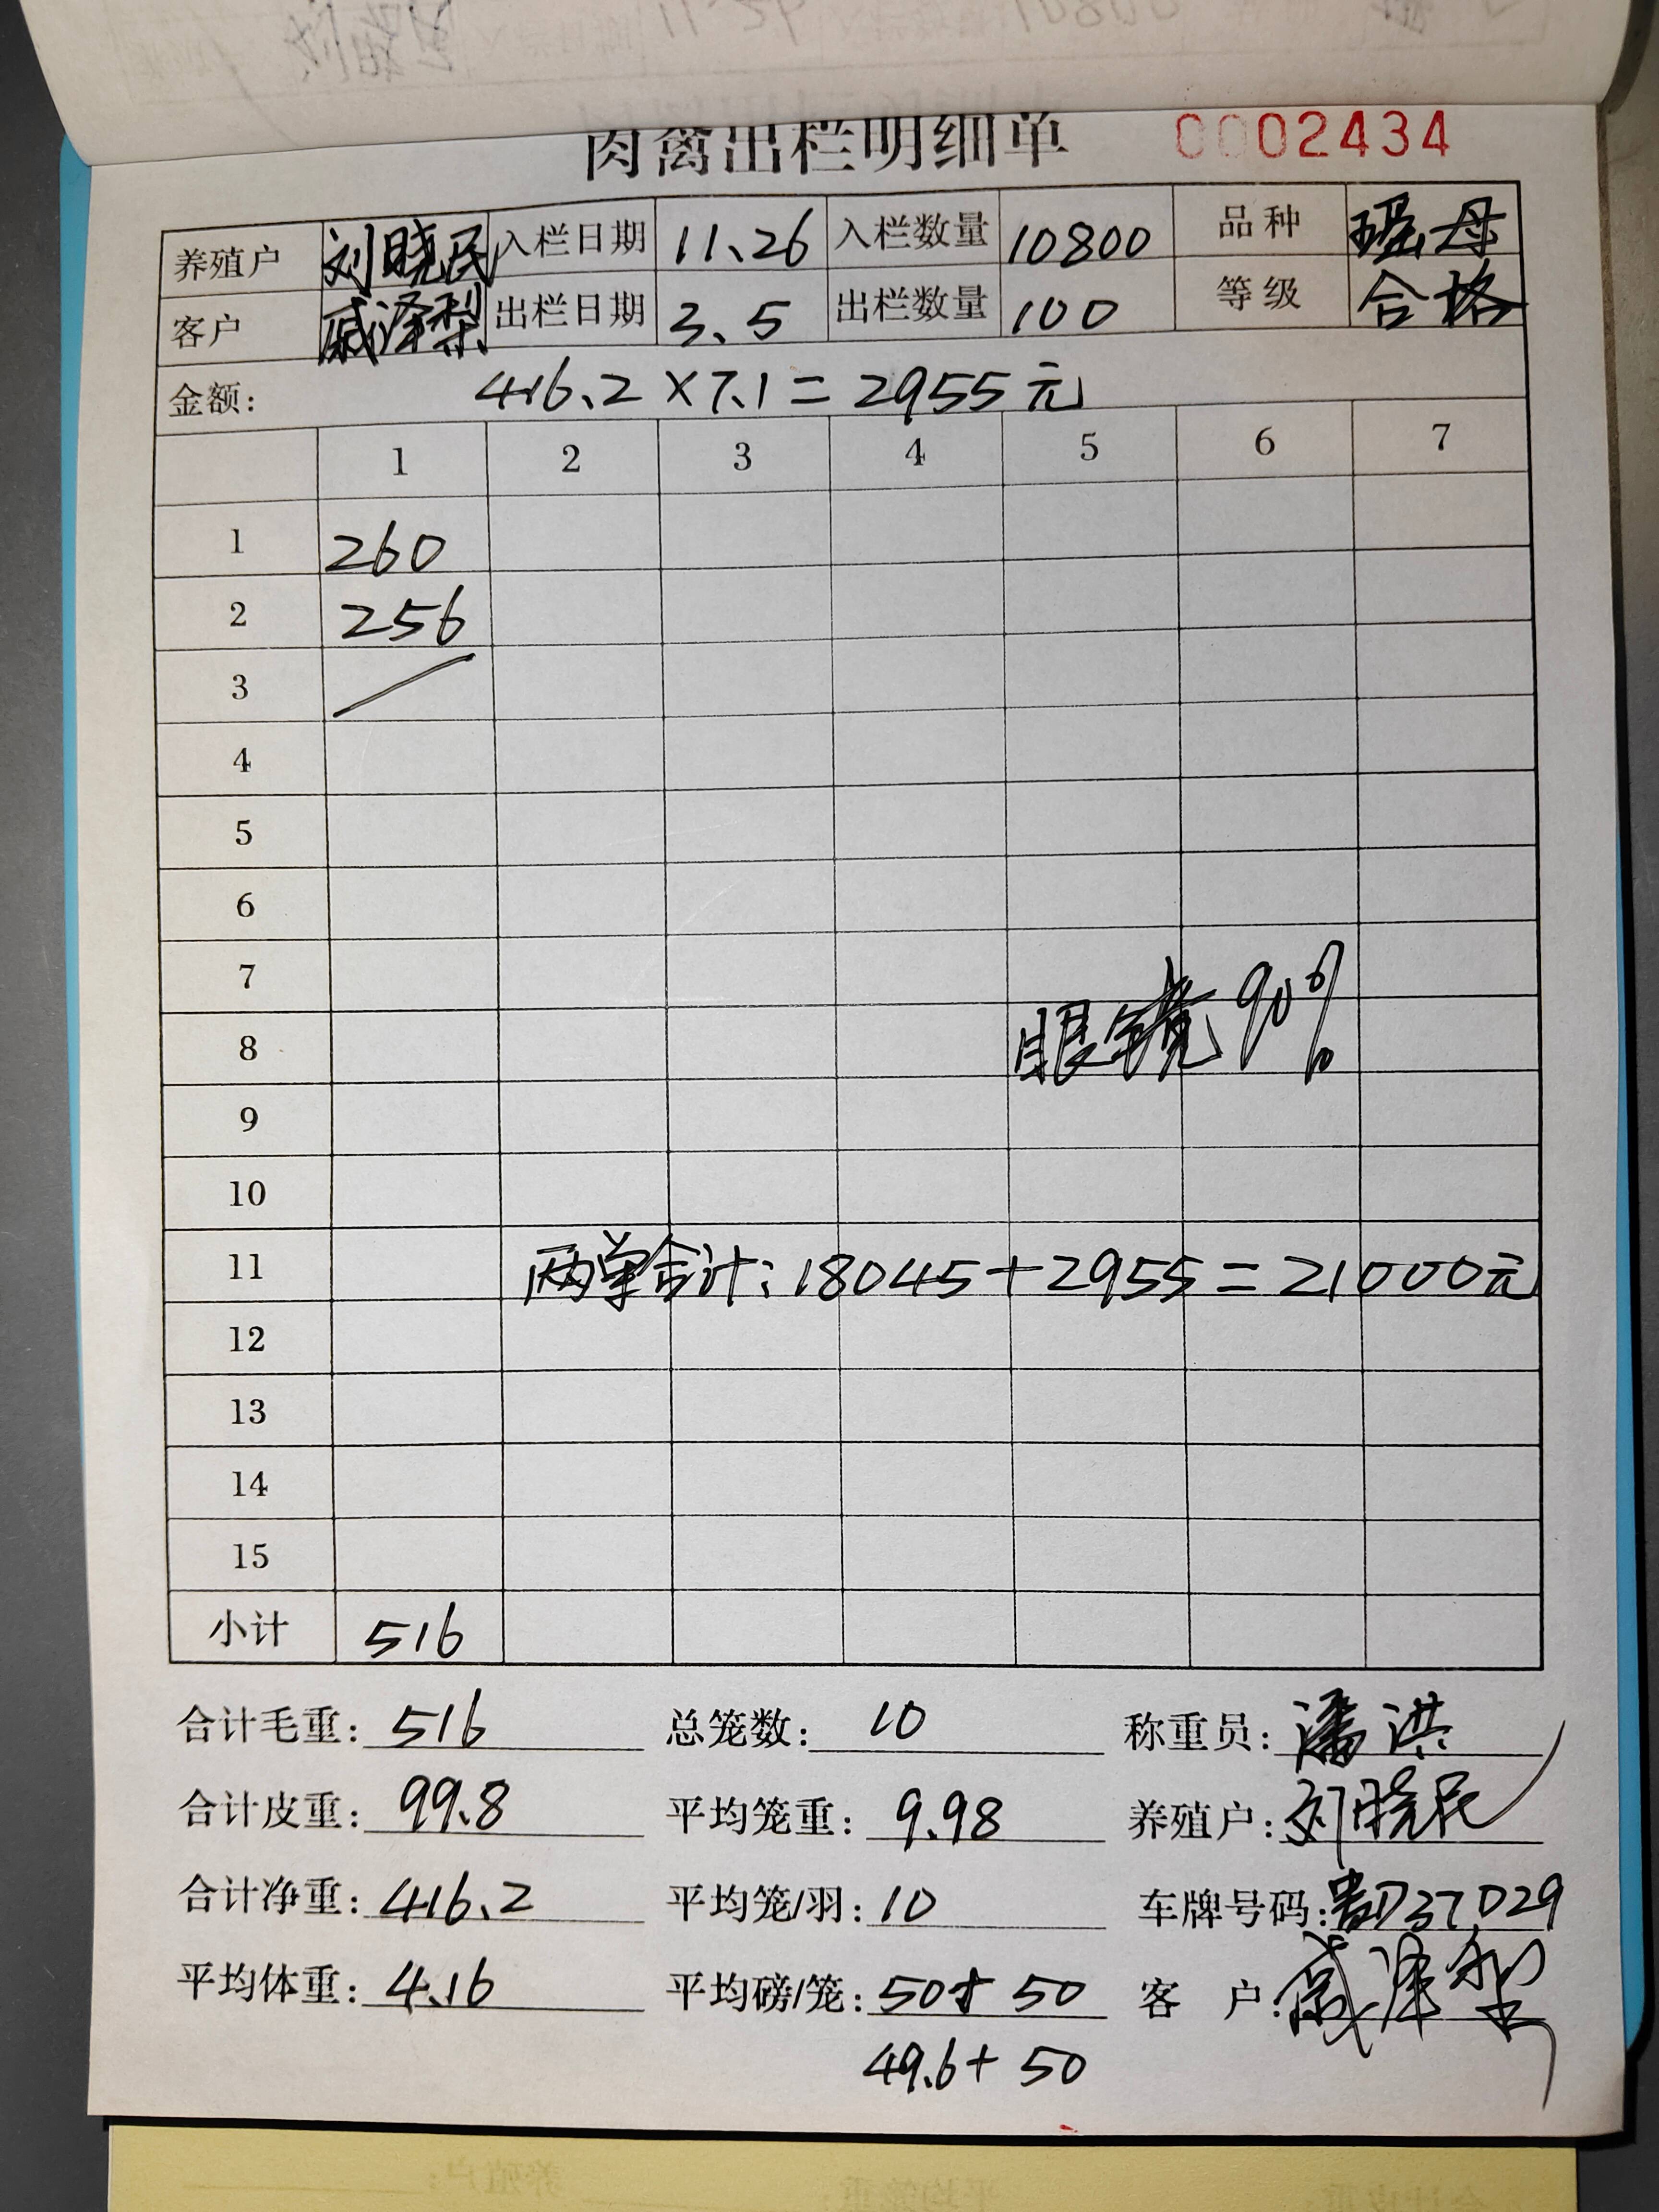 肉禽出栏明细单 0002434
养殖户 刘晓民 入栏日期 11.26 入栏数量 10800 品种 瑶母
客户 戚泽梨 出栏日期 3.5 出栏数量 100 等级 合格
金额: 416.2×7.1=2955元
1 2 3 4 5 6 7
1 260
2 256
3
4
5
6
7
8 眼镜90%
9
10
11 两单合计:18045+2955=21000元
12
13
14
15
小计 516
合计毛重: 516 总笼数: 10 称重员: 潘洪
合计皮重: 99.8 平均笼重: 9.98 养殖户: 刘晓民
合计净重: 416.2 平均笼/羽: 10 车牌号码: 贵D37029
平均体重: 4.16 平均磅/笼: 50+50 客户: 戚泽梨
49.6+50